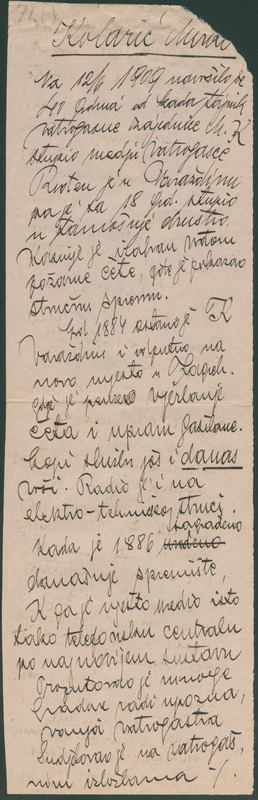 Kolarić Mirko
Na 12/6 1909 navršilo se
40 godina od kada tajnik
vatrogasne zajednice M. K
stupio medju vatrogasce
Rodjen je u Varaždinu
pa je sa 18 god. stupio
u tamošnje društvo.
Kasnije je izabran vodjom
požarne čete, gdje je pokazao
stručnu spremu.
God 1884 ostavio je K
Varaždin i otputio na
novo mjesto u Zagreb.
gdje je preuzeo vježbanje
četa i upravu gasilane.
Koju službu još i danas
vrši. Radio je i na
elektro-tehničkoj struci.
sagradjeno
Kada je 1886
današnje spremište,
K ga je mjesto
toliko telefonsku centralu
po najnovijem sustavu
Proputovao je mnoge
gradove radi upozna,
vanja vatrogastva
Sudjelovao je na vatrogas,
nim izložbama ·/.